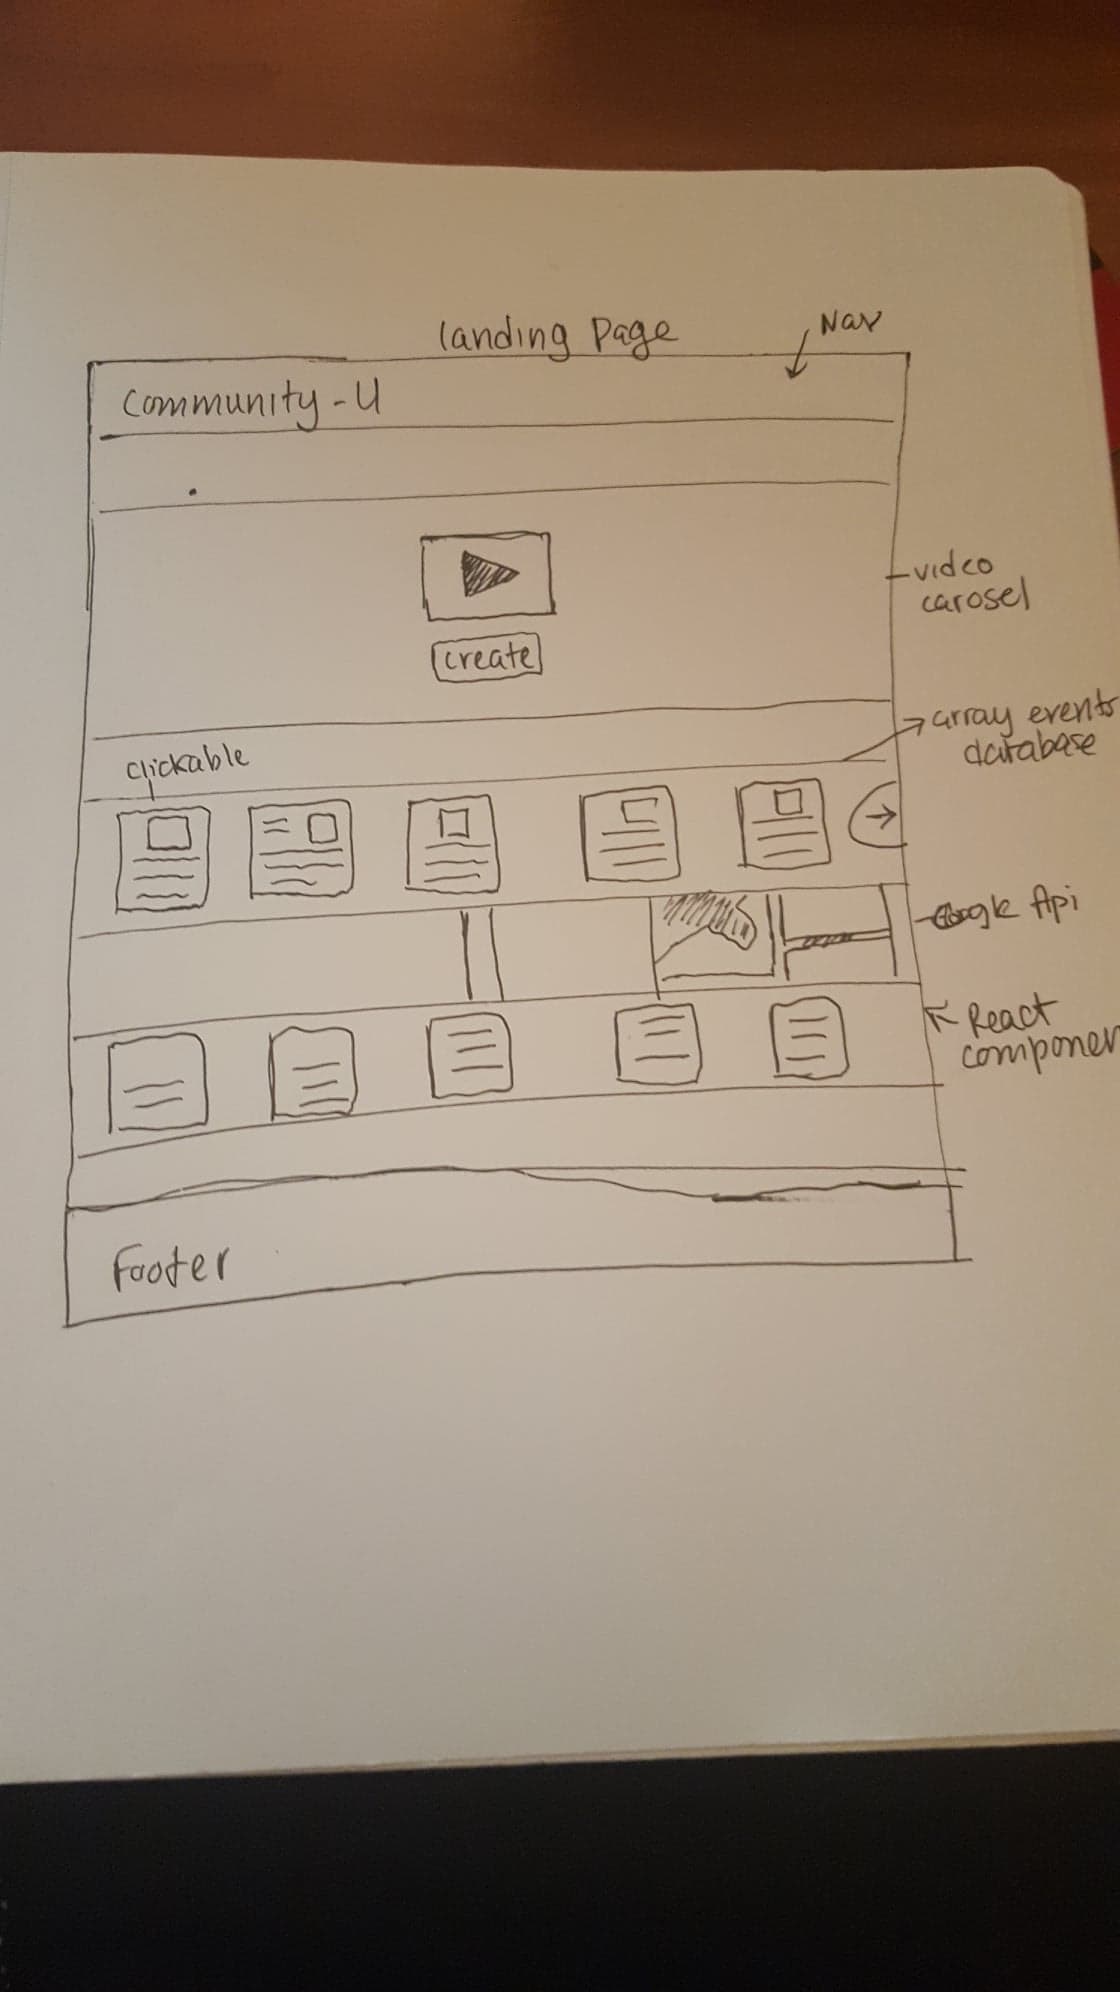 landing Page
Nav
Community-U
-video
carosel
create
array events
database
clickable
-Google Api
React
componen
Footer